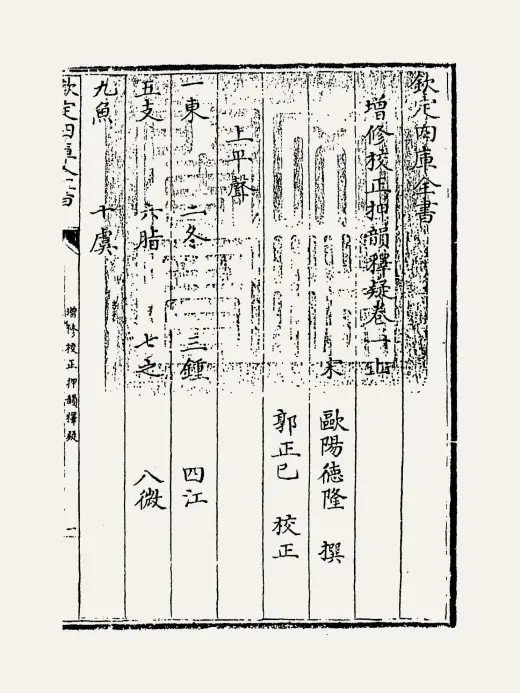 欽定四庫全書
增修校正押韻釋疑卷一
宋 歐陽徳隆 撰
郭正己 校正
上平聲
一東 二冬 三鍾 四江
五支 六脂 七之 八微
九魚 十虞
欽定四庫全書
增修校正押韻釋疑
一